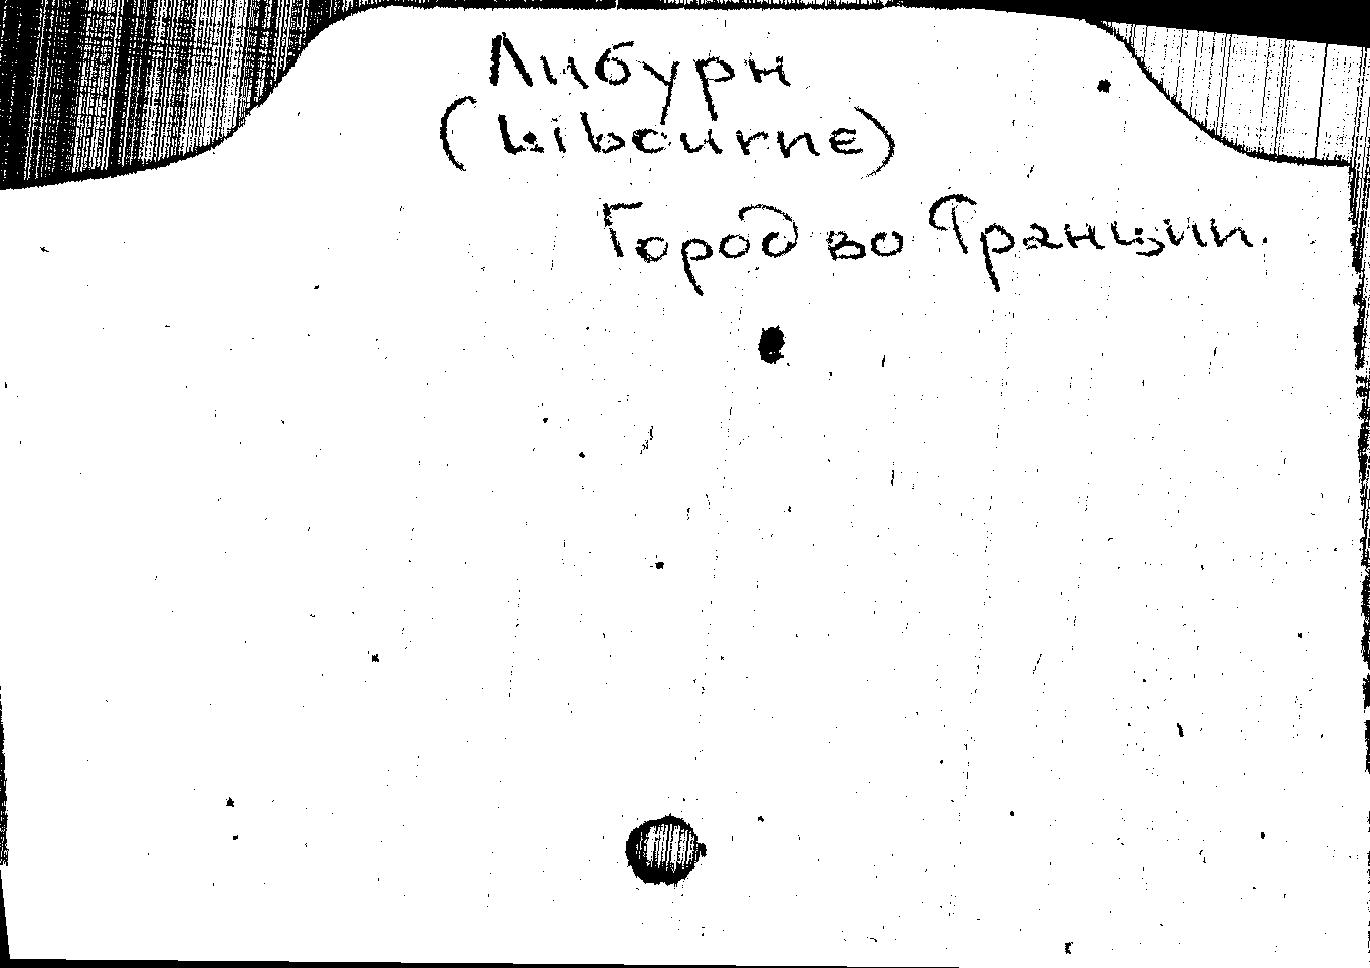 Либурн
(Libourne)
Город во Франции.